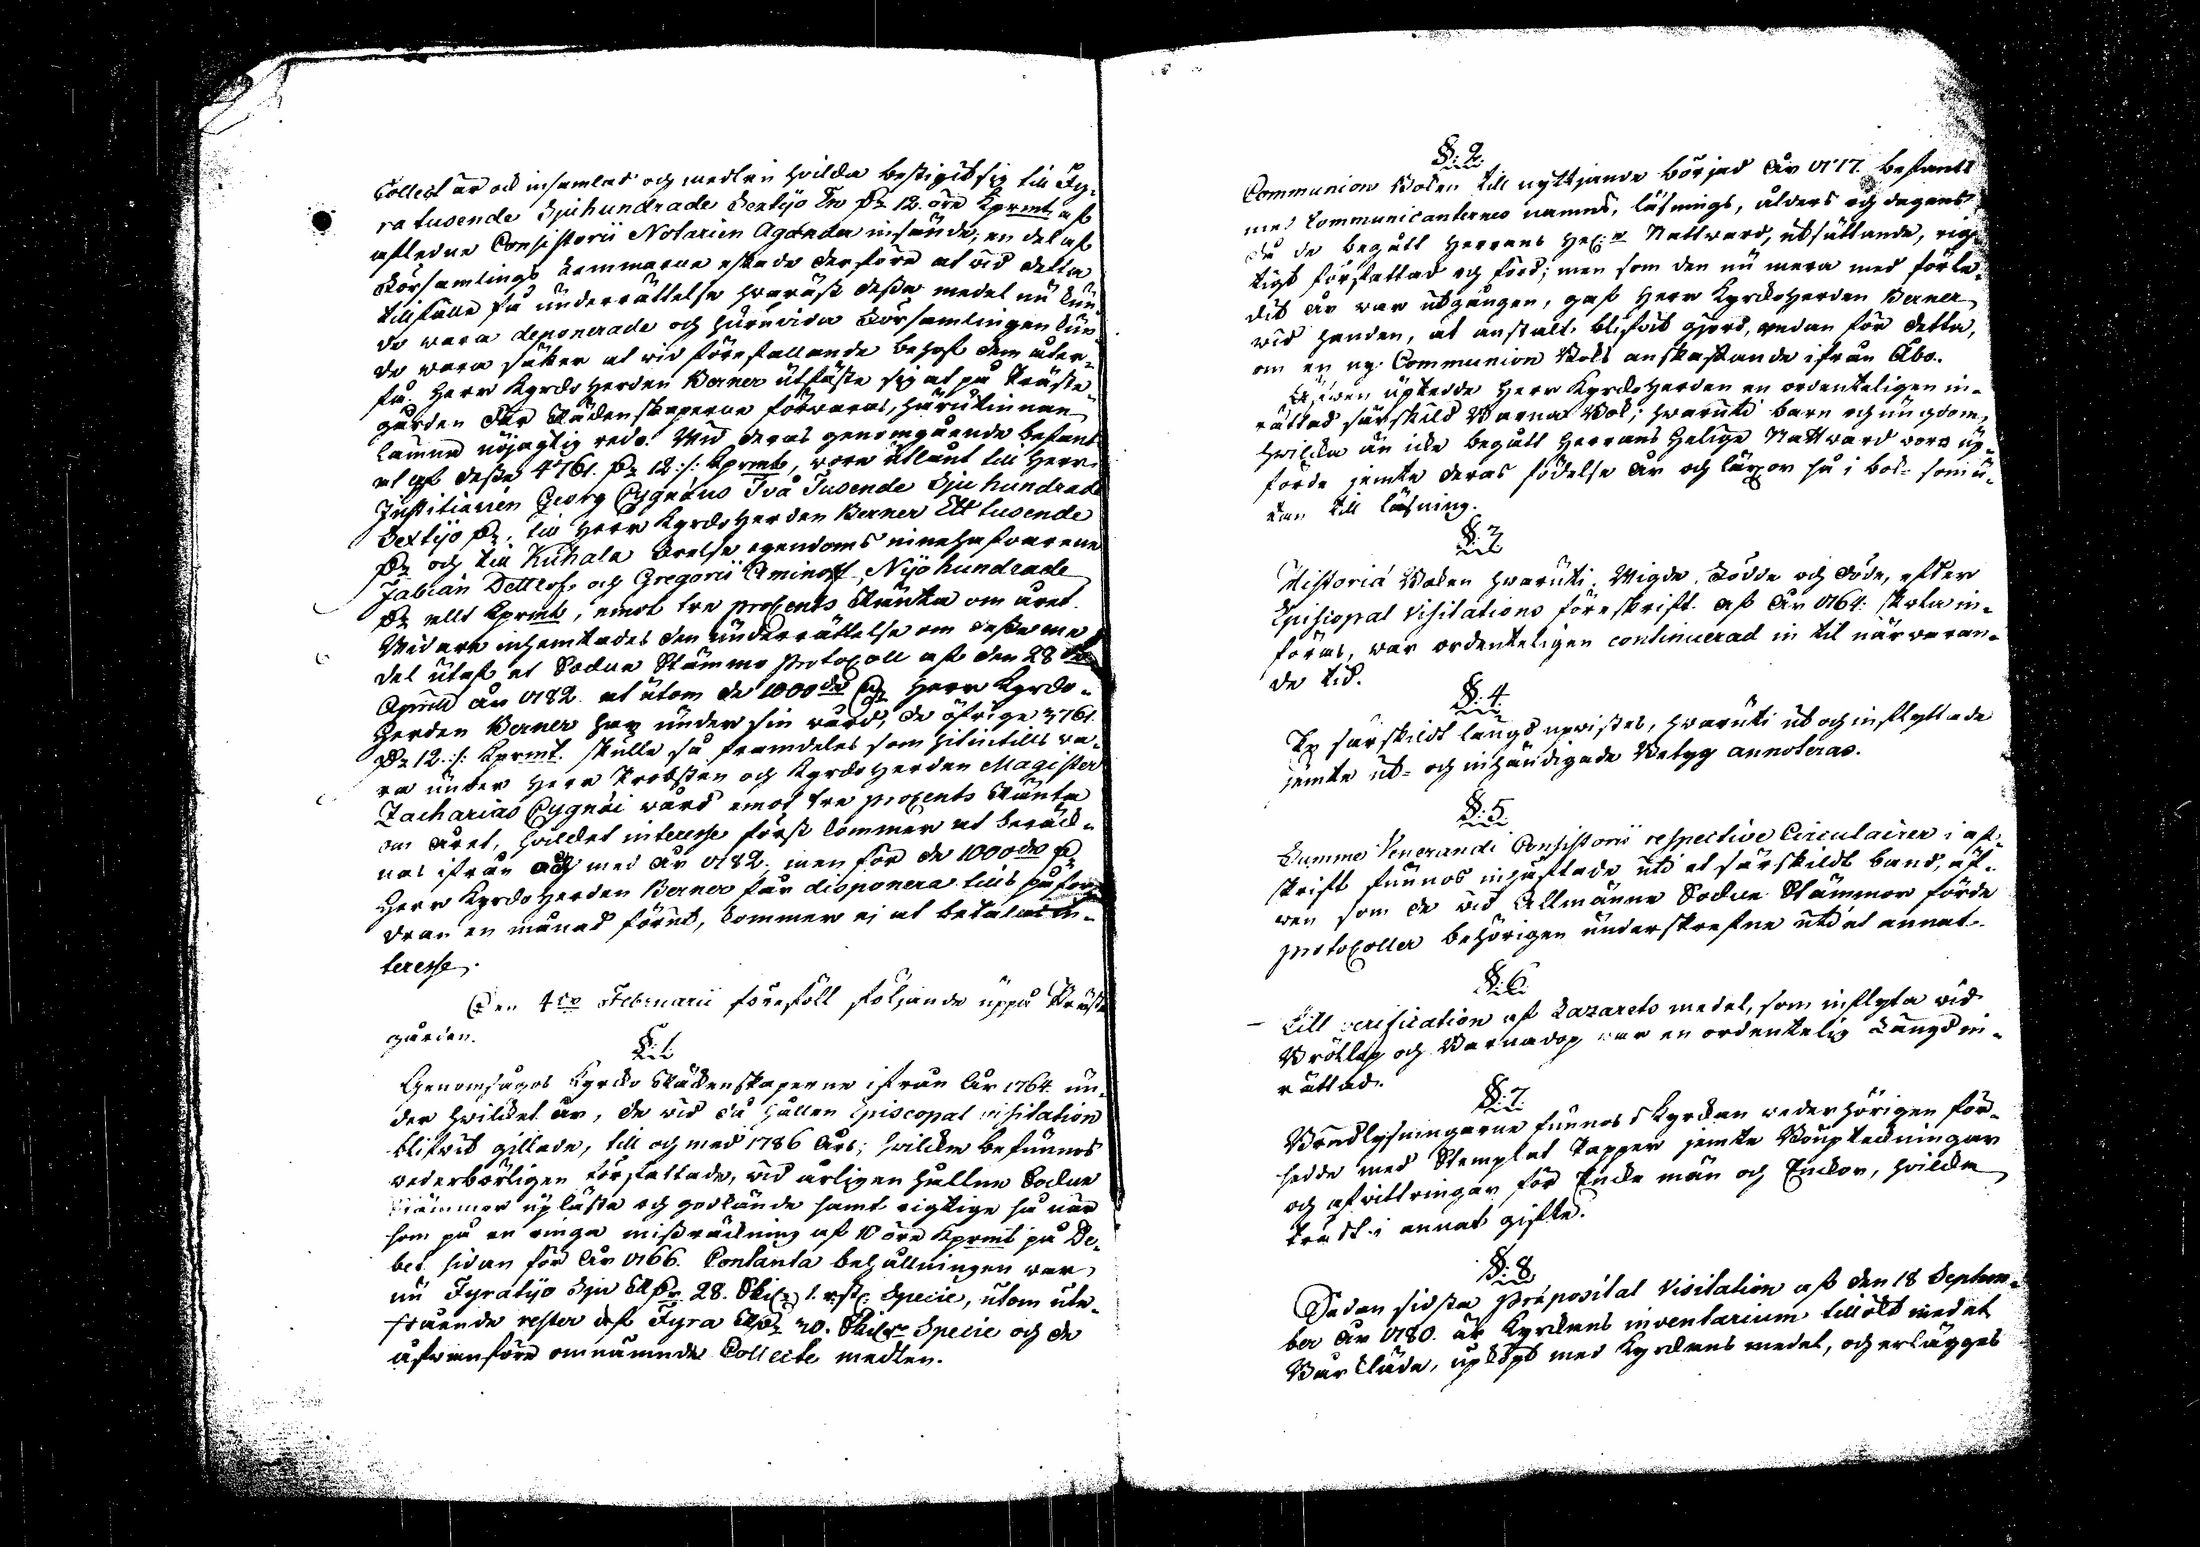 Collect är ock insamlad och medlen hvilcka bestigit sig til Fy-
ra tusende Sjuhundrade Sextijo En Dr 12. öre Kprmt af
afledne Consistorii Notarien Agander insände; en del af
Församlings Lemmarne eskade derföre at vid detta
tillfälle få underrättelse hvaräst dessa medel nu kun-
de vara deponerade och huruvida Församlingen kun-
de vara säker at vid förefallande behof dem åter-
få. Herr Kyrckoherden Berner utfäste sig at på Präste-
gården där Räckenskaperne förvaras, härutinnan
lämna nöjagtig redo. Wid deras genomgående befants
at af dessa 4761. Dr 12:/: Kprmt, voro utlånt till Herr
Justitiarien Georg Cygnæus Två Tusende Sju hundrade
Sextijo Dr, til Herr Kyrckoherden Berner Ett tusende
Dr och til Kuhala frelse egendoms innehafvarene
Fabian Dettlofs och Gregorii Aminoff, Nijohundrade
Dr allt Kprmt, emot tre proCents Ränta om året.
Widare inhemtades den underrättelse om dessa me-
del utaf et Sockne Stämmo Protocoll af den 28
Aprill år 1782. at utom de 1000 de Dr Herr Kyrcko-
herden Berner har under sin vård, de öfrige 3761.
Dr 12:/: Kprmt. skulle så framdeles som hitintills va-
ra under Herr Probsten och Kyrckoherden Magister
Zacharias Cygnæi vård emot tre proCents Ränta
om året, hvilcket interesse först kommer at beräck-
nas ifrån och med år 1782; men för de 1000 de Dr
Herr Kyrckoherden Berner får disponera tills på for-
dran en månad förut, kommer ej at betalas in-
teresse.
Den 4de Februarii föreföll följande uppå Präste
gården.
§. 1.
Genomsågos Kyrcko Räckenskaperne ifrån år 1764 un-
der hvilcket år, de vid då hållen Episcopal visitation
blifvit gillade, till och med 1786 års; hvilcka befunnos
vederbörligen författade, vid årligen hållne Sockne
Stämmor upläste och godkände samt rigtige så när
som på en ringa missräckning af 10 öre Kprmt på De-
bet sidan för år 1766. Contanta behållningen var
nu Fyratijo Sju RDr 28. Skil 1. rst. Specie, utom ute-
stående rester af Fyra RDr 30. Skilr Specie och de
åfvanföre omnämnde Collecte medlen.
§. 2.
Communion Boken till nyttjande börjad år 1777. befants
med Communicanternes namns, läsnings, ålders och dagens
då de begått Herrans Hel:a Nattvard, utsättande, rig-
tigt författad och förd; men som den nu mera med förle-
dit år var utgången, gaf Herr Kyrckoherden Berner
vid handen, at anstalt blifvit gjord, redan för detta,
om en ny Communion Boks anskaffande ifrån Åbo.
Äfven uptedde Herr Kyrckoherden en ordenteligen in-
rättad särskild Barna Bok; hvaruti barn och ungdom,
hvilcka än icke begått Herrans Helige Nattvard voro up-
förde jemte deras födelse år och läxor så i bok- som u-
tan till läsning.
§. 3.
Historiæ Boken hvaruti Wigde, Födde och Döde, efter
Episcopal Visitations föreskrift af år 1764. skola in-
föras, var ordenteligen continuerad in til närvaran-
de tid.
§. 4.
En särskildt längd upvistes, hvaruti ut och inflyttade
jemte ut- och inhändigade Betyg annoteras.
§. 5.
Summe Venerandi Consistorii respective Circulairer i af-
skrift funnos inhäftade uti et särskildt band, äf-
ven som de vid Allmänne Sockne Stämmor förde
protocoller behörigen underskrefne uti et annat.
§. 6.
Till verification af Lazarets medel, som inflyta vid
Bröllop och Barnadop var en ordentelig Längd in-
rättad.
§. 7.
Brudlysningarne funnos i Kyrckan vederbörigen för-
sedde med Stemplat Papper jemte Bouptekningar
och afvittringar för Encke män och Enckor, hvilcka
trädt i annat gifte.
§. 8.
Sedan sidsta Præposital Visitation af den 18 Septem-
ber år 1780. är Kyrckans inventarium tillökt med et
Bår kläde, upköpt med Kyrckans medel, och erlägges